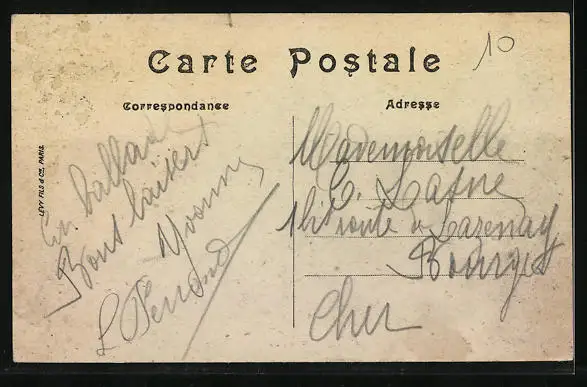 Carte Postale
10
Correspondance
Adresse
LÉVY FILS & Cie, PARIS
En ballade
Bons baisers
Yvonne
L Perrand
Mademoiselle
C. Lafne
route de Lazenay
Bourges
Cher